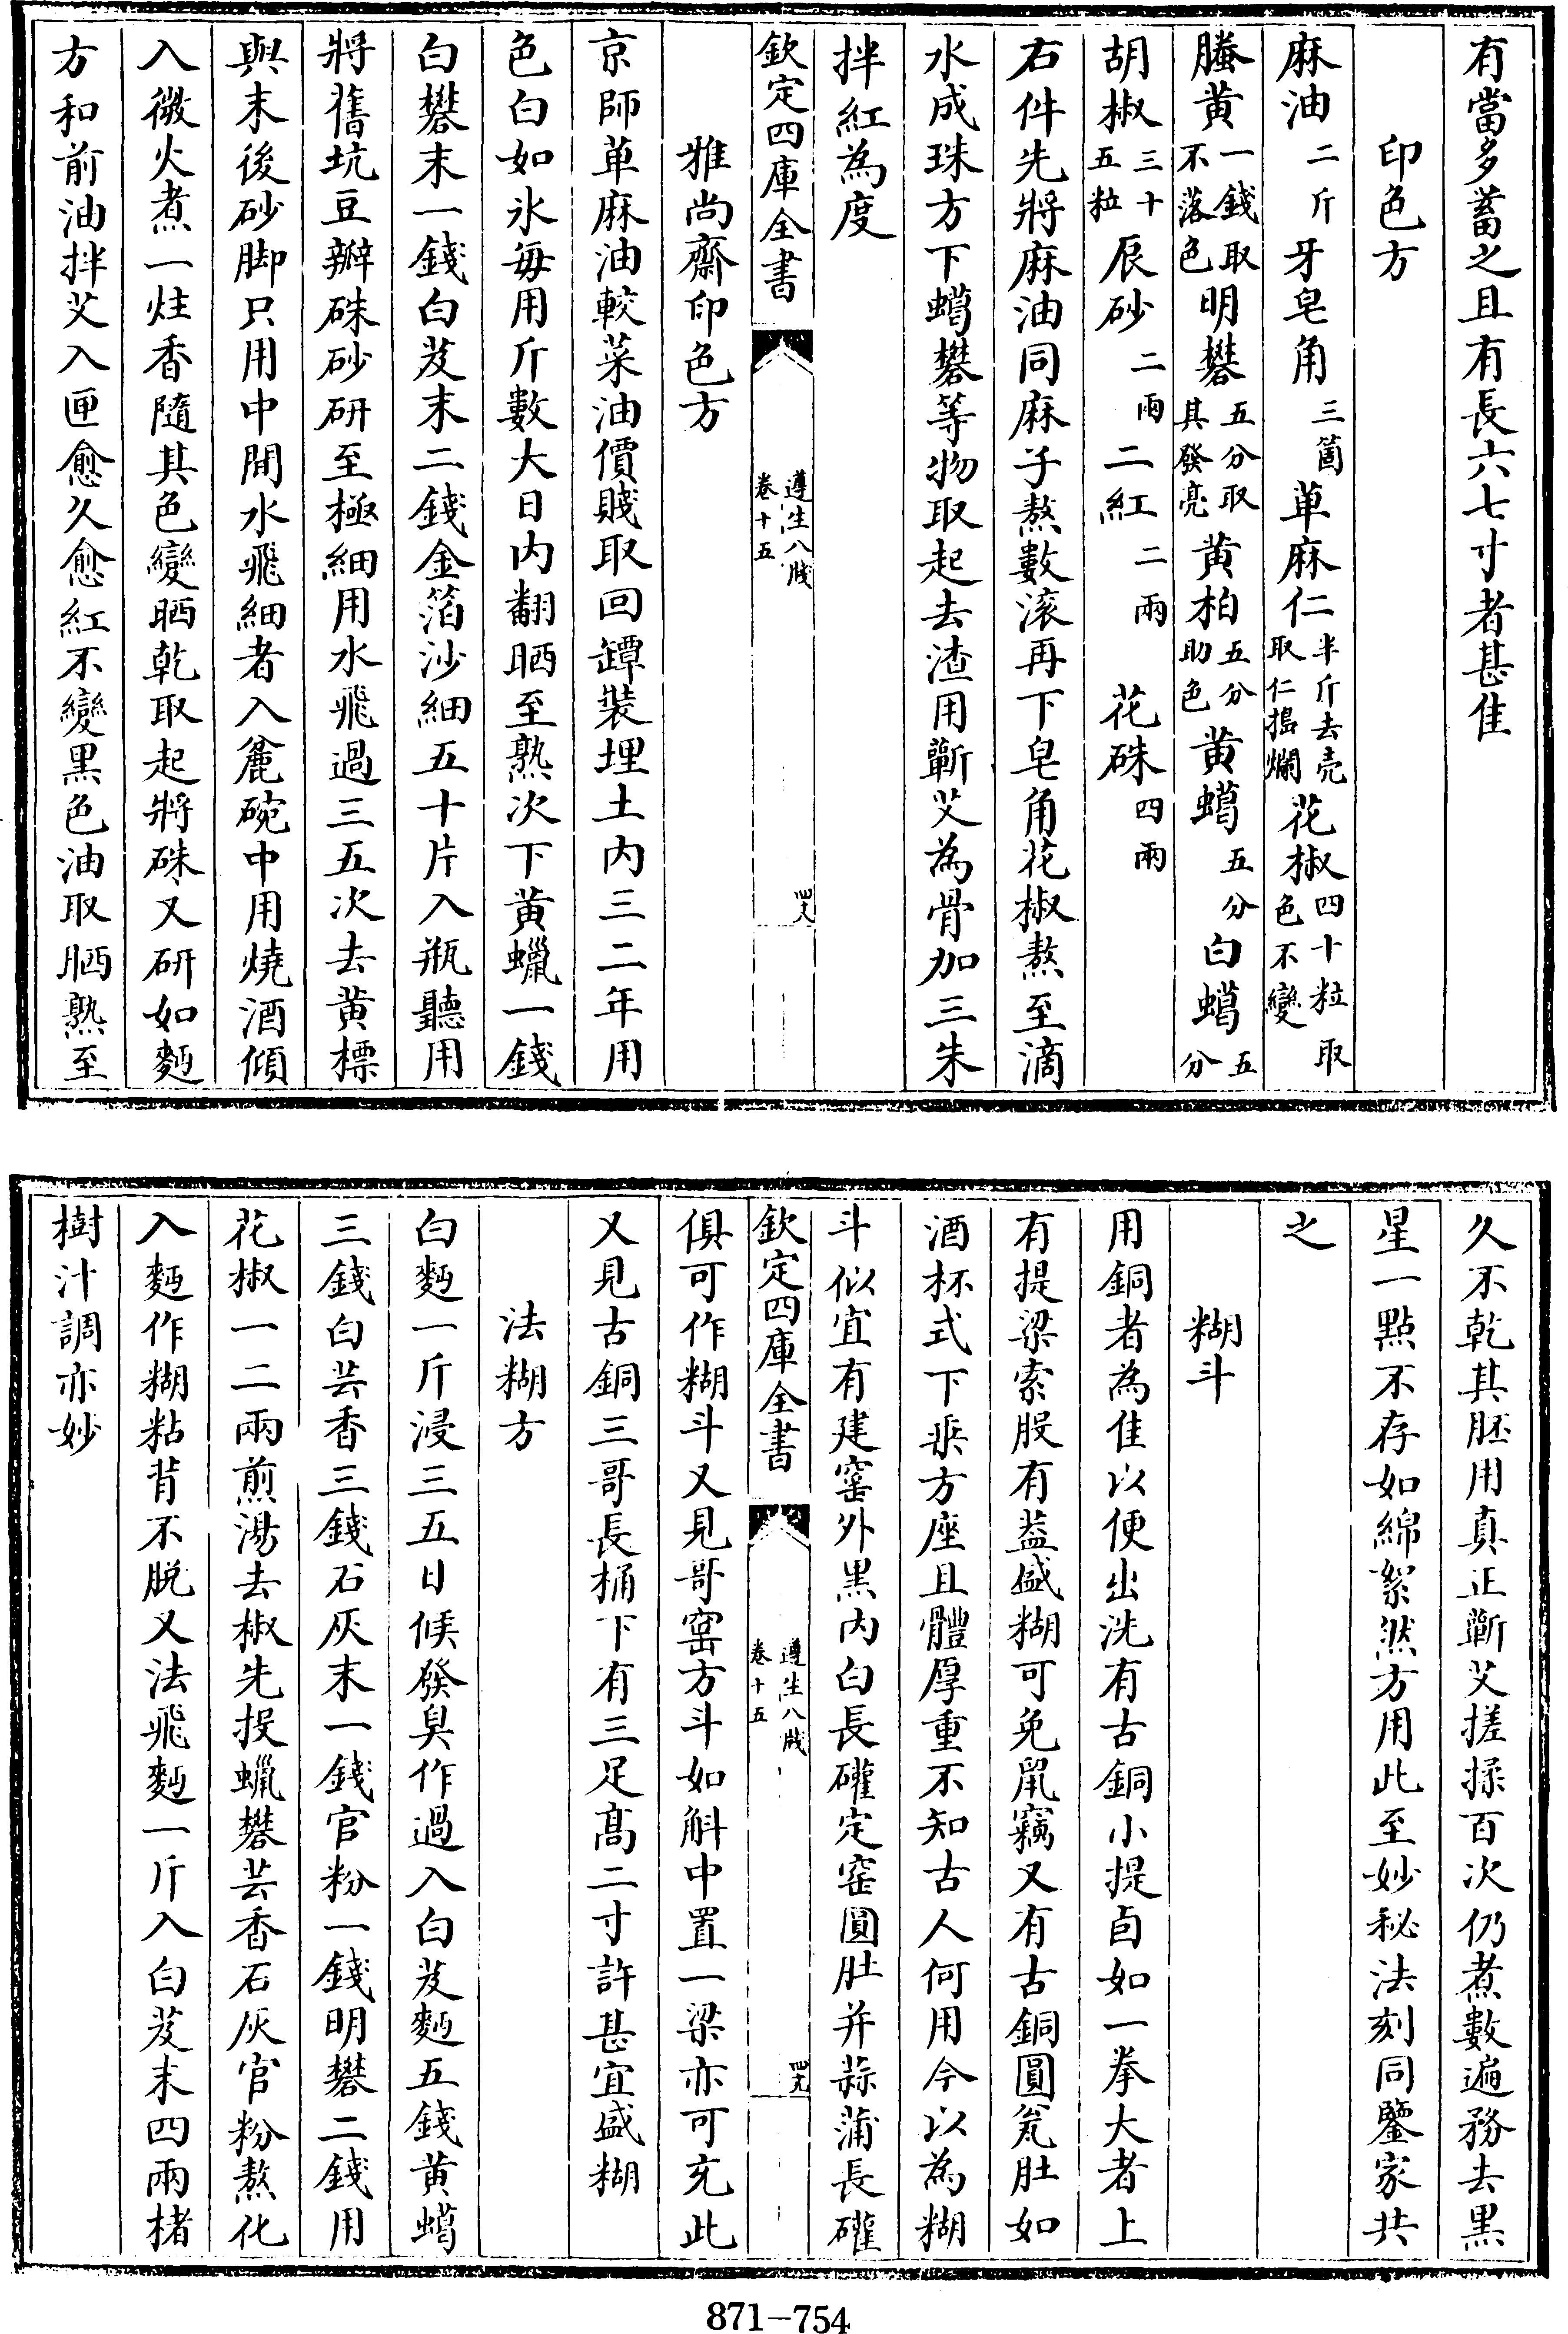 有當多蓄之且有長六七寸者甚佳
印色方
麻油二斤牙皂角三箇萆麻仁半斤去壳取仁搗爛花椒四十粒取色不變
螣黄一錢取不落色明礬五分取其發亮黄柏五分助色黄蠟五分白蠟五分
胡椒三十五粒辰砂二兩二紅二兩花硃四兩
右件先將麻油同麻子熬數滚再下皂角花椒熬至滴
水成珠方下蠟礬等物取起去渣用蘄艾為骨加三朱
拌紅為度
欽定四庫全書
遵生八牋
卷十五
四八
雅尚齋印色方
京師萆麻油較菜油價賤取回罈裝埋土内三二年用
色白如氷毎用斤數大日内翻晒至熟次下黄蠟一錢
白礬末一錢白芨末二錢金箔沙細五十片入瓶聽用
將舊坑豆瓣硃砂研至極細用水飛過三五次去黄標
與末後砂脚只用中間水飛細者入麄碗中用燒酒傾
入微火煮一炷香隨其色變晒乾取起將硃又研如麪
方和前油拌艾入匣愈久愈紅不變黒色油取晒熟至
久不乾其胚用真正蘄艾搓揉百次仍煮數遍務去黒
星一點不存如綿絮然方用此至妙秘法刻同鑒家共
之
糊斗
用銅者為佳以便出洗有古銅小提卣如一拳大者上
有提梁索股有葢盛糊可免鼠竊又有古銅圓瓮肚如
酒杯式下乗方座且體厚重不知古人何用今以為糊
斗似宜有建窑外黒内白長礶定窑圓肚并蒜蒲長礶
欽定四庫全書
遵生八牋
卷十五
四九
俱可作糊斗又見哥窑方斗如斛中置一梁亦可充此
又見古銅三哥長桶下有三足髙二寸許甚宜盛糊
法糊方
白麪一斤浸三五日候發臭作過入白芨麪五錢黄蠟
三錢白芸香三錢石灰末一錢官粉一錢明礬二錢用
花椒一二兩煎湯去椒先投蠟礬芸香石灰官粉熬化
入麪作糊粘背不脱又法飛麪一斤入白芨末四兩楮
樹汁調亦妙
871-754